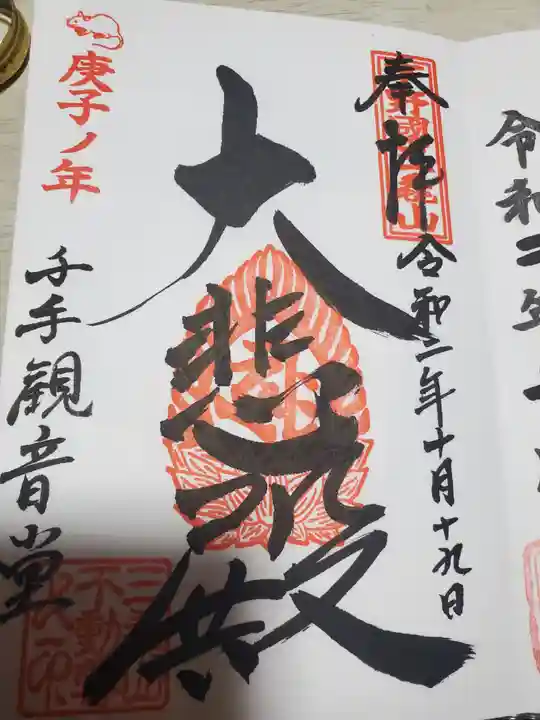 奉拝
令和二年十月十九日
大悲殿
庚子ノ年
千手観音堂
令和二年